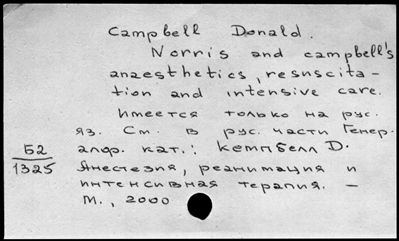 Campbell Donald.
Norris and campbell's
anaesthetics, resuscita-
tion and intensive care.
Имеется только на рус.
яз. См. в рус. части Генер.
алф. кат.: Кемпбелл D.
Анестезия, реанимация и
интенсивная терапия. –
М., 2000
Б2
1325